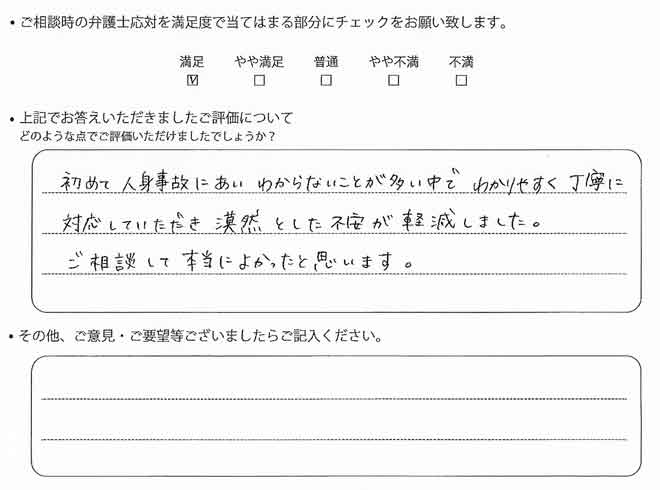 ・ご相談時の弁護士応対を満足度で当てはまる部分にチェックをお願い致します。
満足 やや満足 普通 やや不満 不満
☑ □ □ □ □
・上記でお答えいただきましたご評価について
どのような点でご評価いただけましたでしょうか？
初めて人身事故にあい わからないことが多い中で わかりやすく丁寧に
対応していただき 漠然とした不安が軽減しました。
ご相談して本当によかったと思います。
・その他、ご意見・ご要望等ございましたらご記入ください。